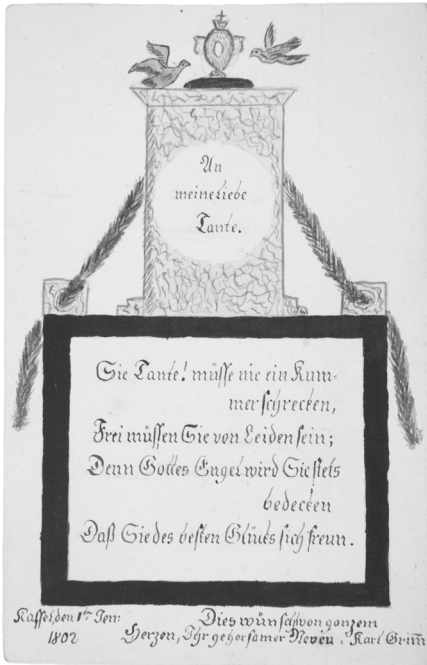 An
meine liebe
Tante.
Sie Tante! müsse nie ein Kum=
mer schrecken,
Frei müssen Sie von Leiden sein;
Denn Gottes Engel wird Sie stets
bedecken
Daß Sie des besten Glücks sich freun.
Kassel, den 1ten Jen:
1802
Dies wünscht von ganzem
Herzen, Ihr gehorsamer Neveu. Karl Grim̅